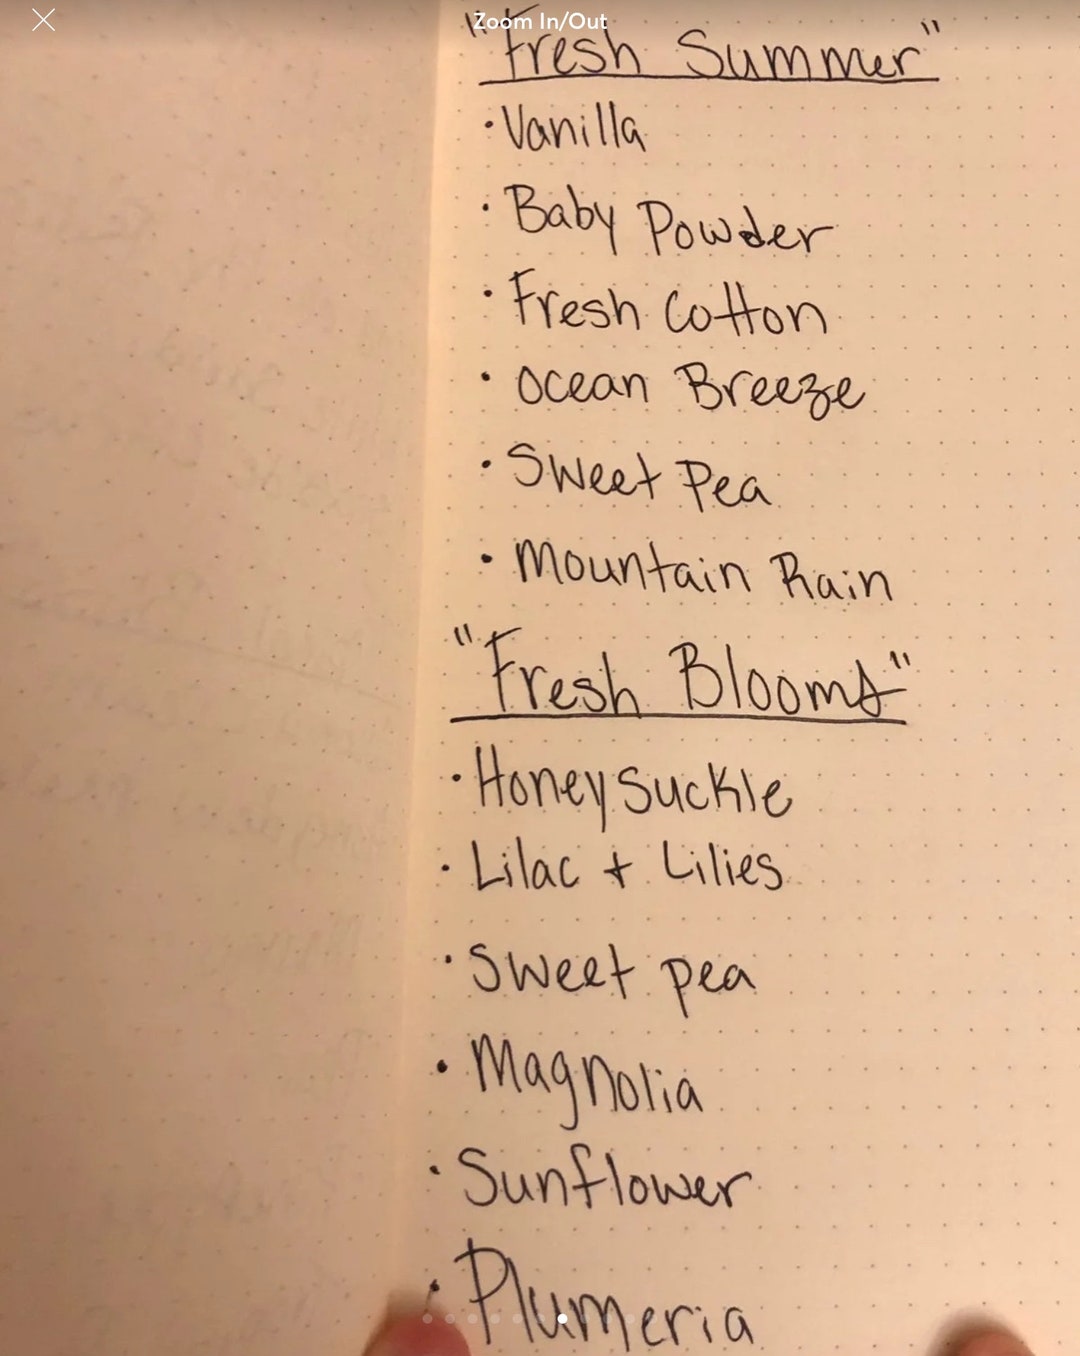 Zoom In/Out
"Fresh Summer"
·Vanilla
·Baby Powder
·Fresh Cotton
·Ocean Breeze
·Sweet Pea
·Mountain Rain
"Fresh Blooms"
·Honeysuckle
·Lilac + Lilies
·Sweet pea
·Magnolia
·Sunflower
·Plumeria